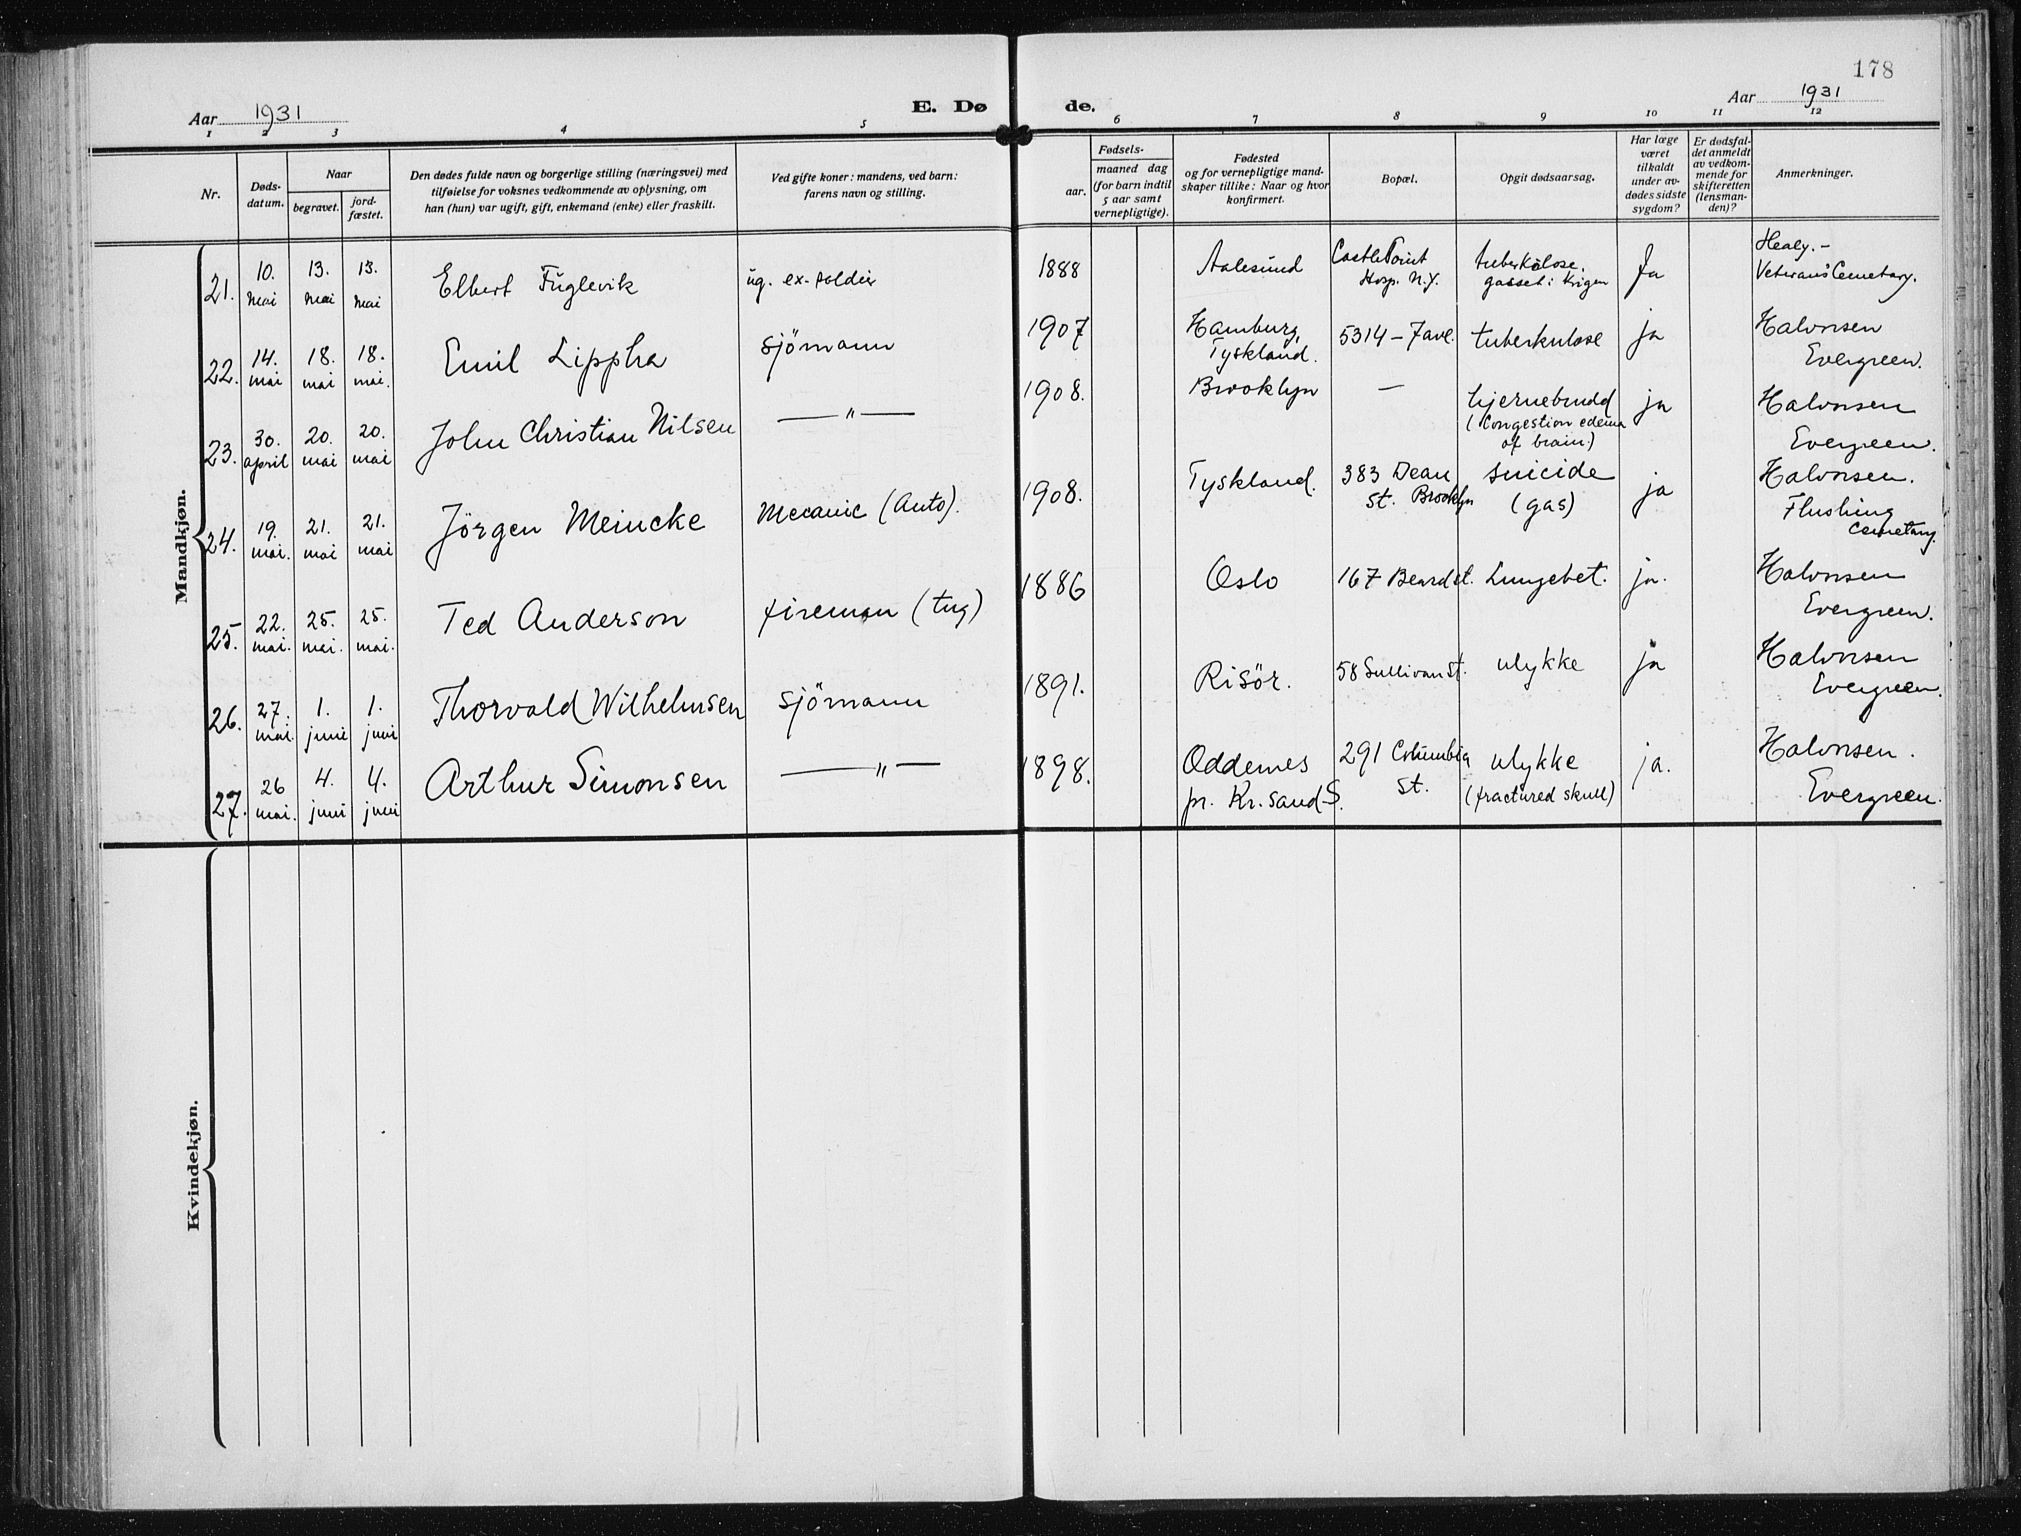 178
Aar 1931
E. Dø
de.
Aar 1931
1 2 3 4 5 6 7 8 9 10 11 12
Nr.
Døds-
datum.
Naar
begravet.
jord-
fæstet.
Den dødes fulde navn og borgerlige stilling (næringsvei) med
tilføielse for voksnes vedkommende av oplysning, om
han (hun) var ugift, gift, enkemand (enke) eller fraskilt.
Ved gifte koner: mandens, ved barn:
farens navn og stilling.
Fødsels-
aar.
maaned dag
(for barn indtil
5 aar samt
vernepligtige).
Fødested
og for vernepligtige mand-
skaper tillike: Naar og hvor
konfirmert.
Bopæl.
Opgit dødsaarsag.
Har læge
været
tilkaldt
under av-
dødes sidste
sygdom?
Er dødsfal-
det anmeldt
av vedkom-
mende for
skifteretten
(lensman-
den)?
Anmerkninger.
Mandkjøn.
21. 10. mai 13. mai 13. mai Elbert Fuglevik ug. ex-soldier 1888 Aalesund Castle Point
Hosp. N.Y. tuberkulose,
gasset i krigen Ja Healy.-
Veterans' Cemetary.
22. 14. mai 18. mai 18. mai. Emil Lippka sjömann 1907 Hamburg,
Tyskland. 5314 - 7 ave. tuberkulose ja Halvorsen
Evergreen.
23. 30. april 20. mai 20. mai John Christian Nilsen — " — 1908. Brooklyn — hjernebrudd
(Congestion edema
of brain.) ja Halvorsen
Evergreen.
24. 19. mai. 21. mai 21. mai Jörgen Meincke Mecanic (Auto). 1908. Tyskland. 383 Dean
St. Brooklyn suicide
(gas) ja Halvorsen.
Flushing
Cemetary.
25. 22. mai. 25. mai. 25. mai. Ted Anderson fireman (tug) 1886 Oslo 167 Beard st. Lungebet. ja. Halvorsen
Evergreen.
26. 27. mai. 1. juni 1. juni Thorvald Wilhelmsen sjömann 1891. Risör. 58 Sullivan st. ulykke ja Halvorsen
Evergreen.
27. 26 mai. 4. juni 4. juni Arthur Simonsen — " — 1898. Oddernes
pr. Kr.sand S. 291 Columbia
St. ulykke
(fractured skull) ja. Halvorsen.
Evergreen.
Kvindekjøn.